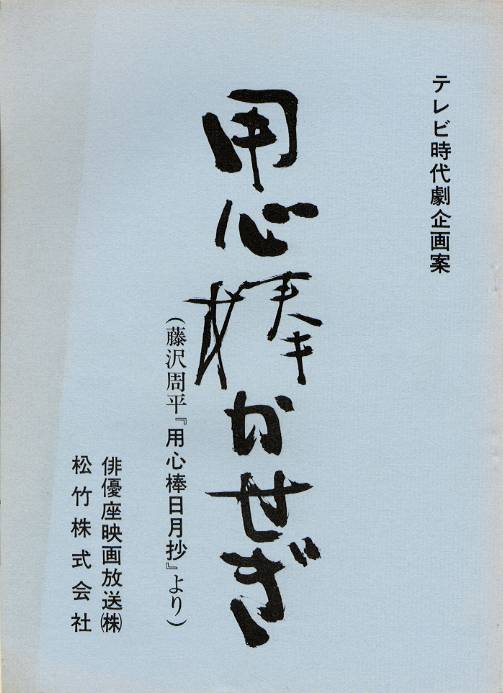 テレビ時代劇企画案
用心棒かせぎ
(藤沢周平『用心棒日月抄』より)
俳優座映画放送㈱
松竹株式会社